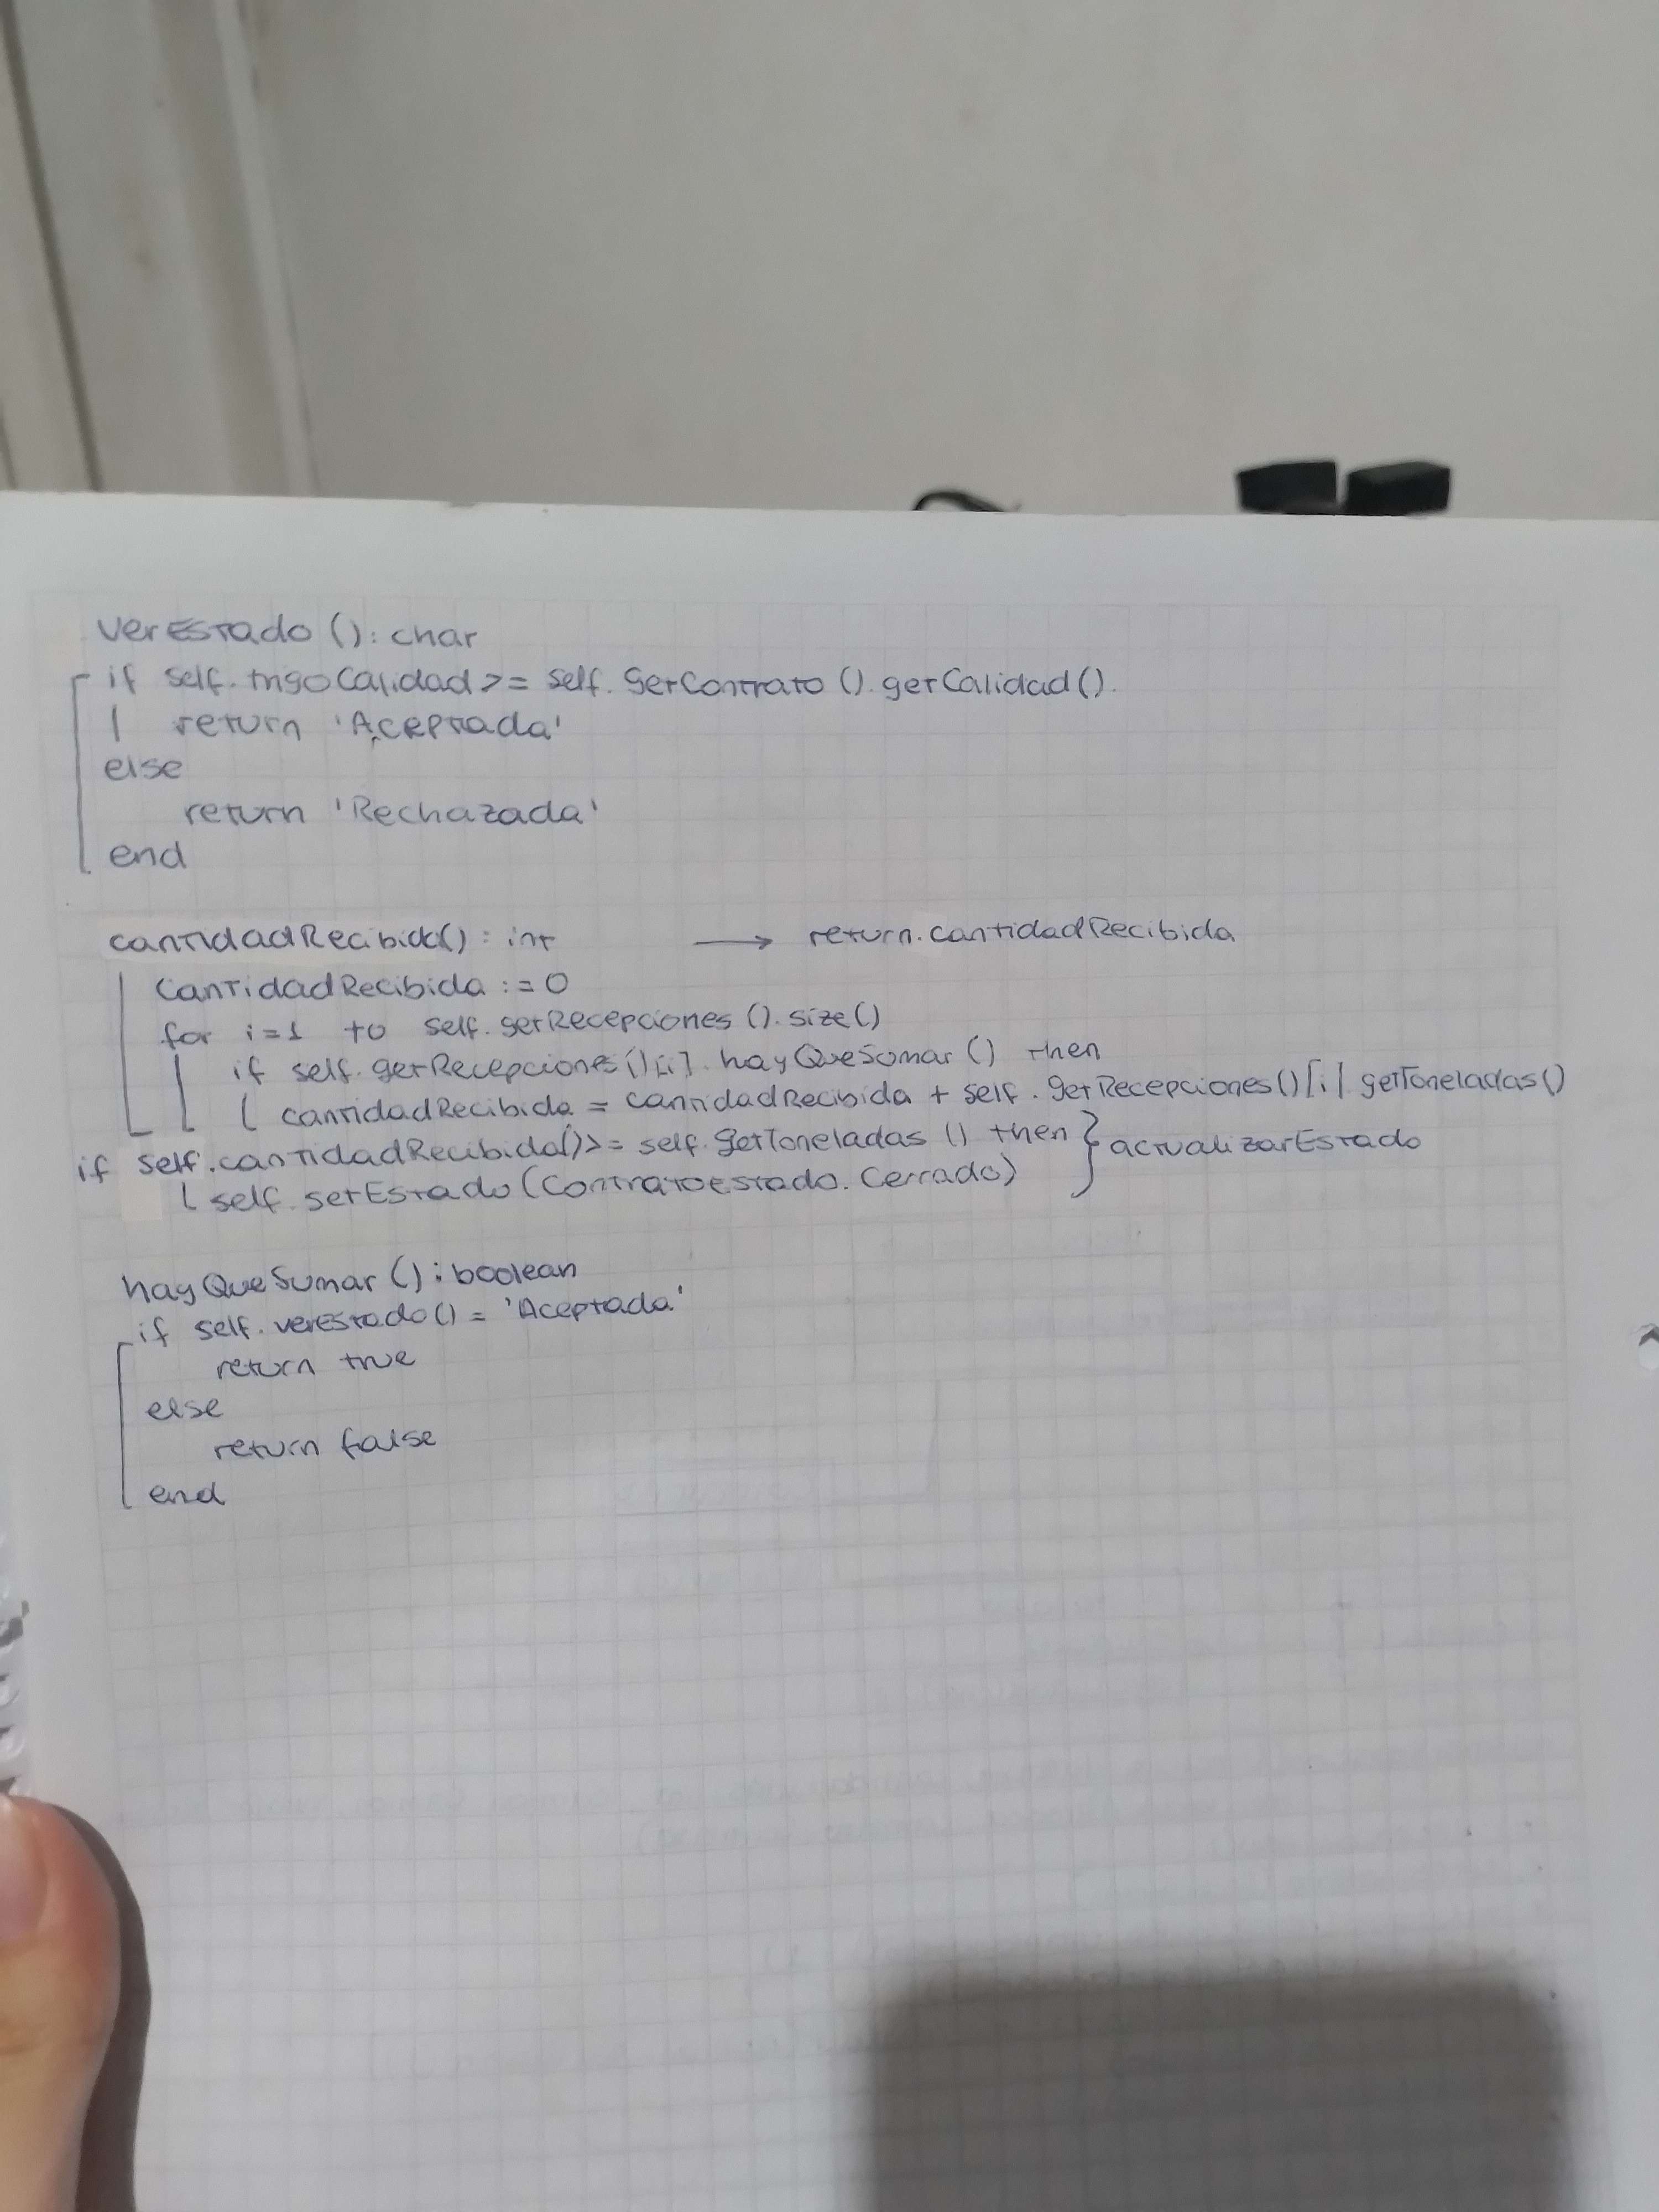 verEstado (): char
if self.trigoCalidad >= self.getContrato().getCalidad().
return 'Aceptada'
else
return 'Rechazada'
end
cantidadRecibida(): int → return.cantidadRecibida
cantidadRecibida := 0
for i=1 to self.getRecepciones().size()
if self.getRecepciones()[i].hayQueSumar() then
cantidadRecibida = cantidadRecibida + self.getRecepciones()[i].getToneladas()
if self.cantidadRecibida()>= self.getToneladas() then } actualizarEstado
self.setEstado(ContratoEstado.Cerrado)
hayQueSumar(): boolean
if self.verEstado() = 'Aceptada'
return true
else
return false
end